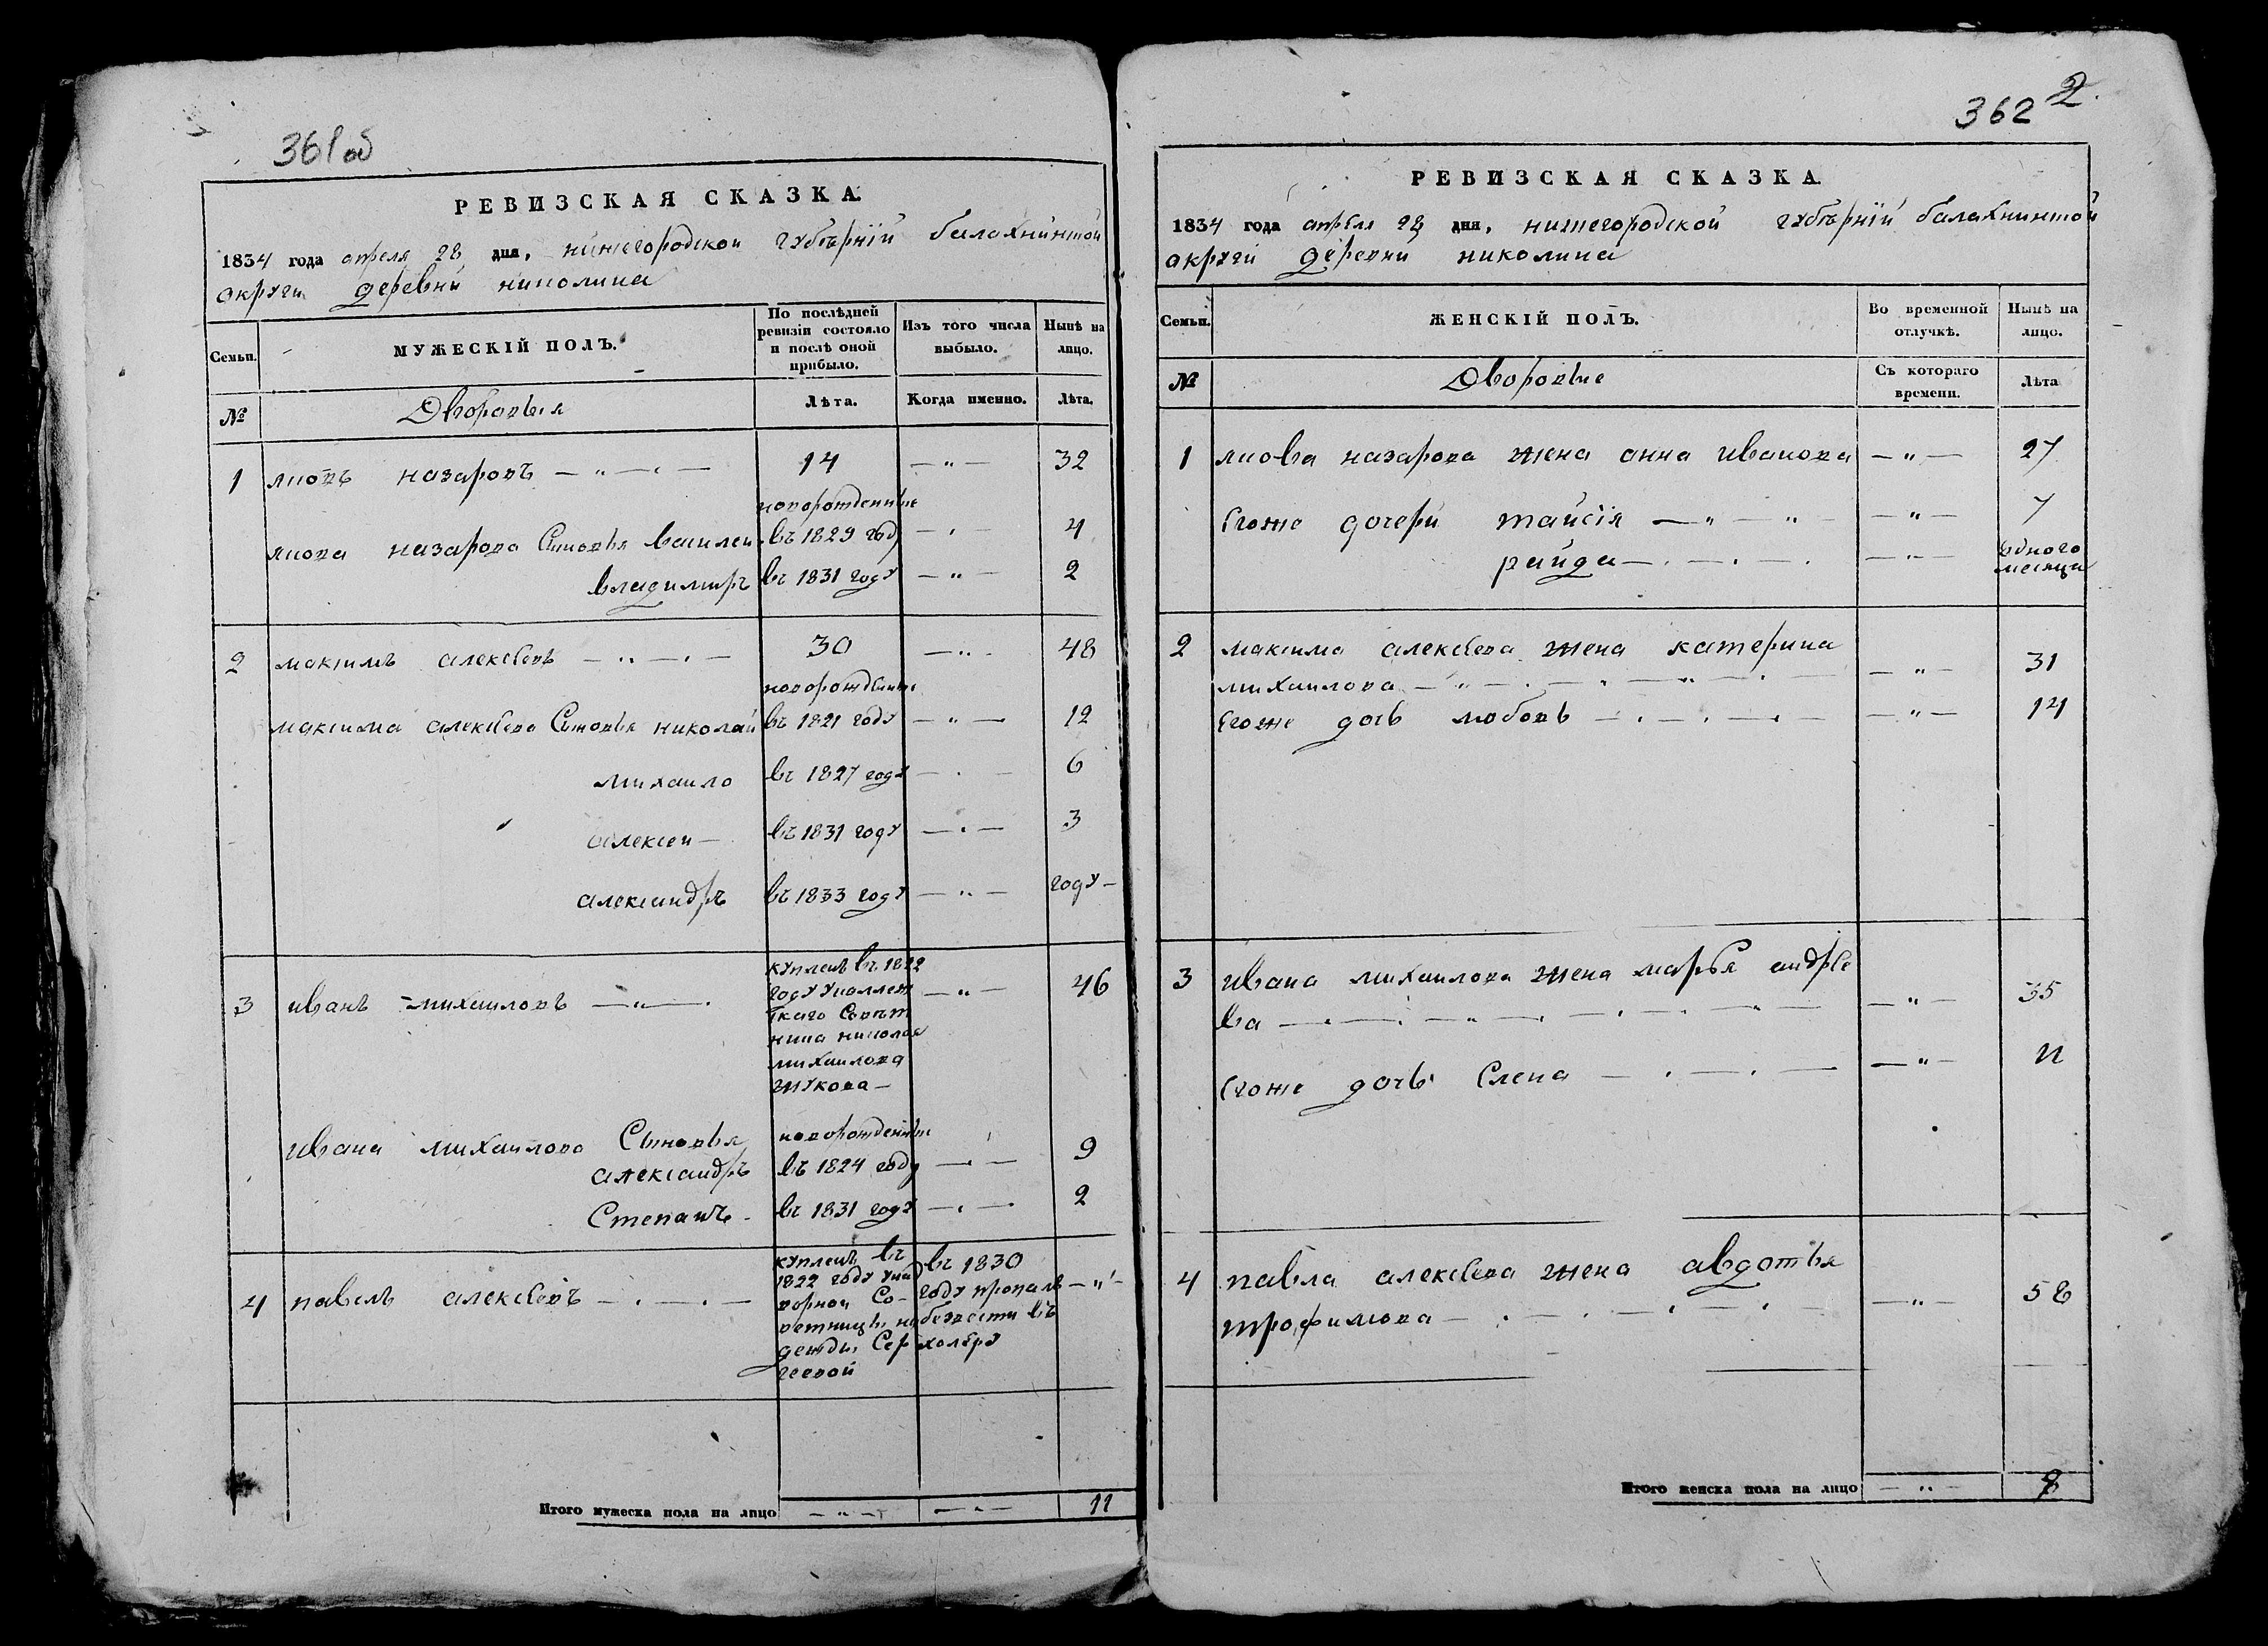 361об
РЕВИЗСКАЯ СКАЗКА.
1834 года апреля 28 дня, нижегородской губерніи балахнинской
округи деревни николина
Семьи.
МУЖЕСКІЙ ПОЛЪ.
По послѣдней
ревизіи состояло
и послѣ оной
прибыло.
Изъ того числа
выбыло.
Нынѣ на
лицо.
№
Дворовыя
Лѣта.
Когда именно.
Лѣта.
1 лиовъ назаровъ — „ — . — 14 — „ — 32
новорожденные
лиова назарова Сыновья василеи въ 1829 году — . — 4
владимиръ въ 1831 году — „ — 2
2 максимъ алексѣевъ — „ — . — 30 — „ — 48
новорожденные
максима алексѣева Сыновья николаи въ 1821 году — „ — 12
михаило въ 1827 году — . — 6
алексеи — въ 1831 году — . — 3
александръ въ 1833 году — „ — году —
купленъ въ 1822
3 иванъ михаиловъ — „ — . году уколлеж — „ — 46
скаго Совѣт
ника николая
михаилова
жукова —
ивана михаилова Сыновья новорожденные
александръ въ 1824 году — . — 9
Степанъ въ 1831 году — . — 2
купленъ въ въ 1830
1822 году унад году пропалъ — „ —
4 павелъ алексѣевъ — . — . — ворнои Со-
ветницы на безвести въ
дежды Сер холеру
геевой
Итого мужеска пола на лицо — „ — — „ — 11
362 2.
РЕВИЗСКАЯ СКАЗКА.
1834 года апреля 28 дня, нижегородской губерніи балахнинской
округи деревни николина
Семьи.
ЖЕНСКІЙ ПОЛЪ.
Во временной
отлучкѣ.
Нынѣ на
лицо.
№
Дворовые
Съ котораго
времени.
Лѣта
1 лиова назарова жена анна иванова — „ — 27
Егоже дочери таисія — „ — „ — — „ — 7
раида — . — . — . — „ — одного
месяца
2 максима алексѣева жена катерина
михаилова — „ — . — „ — „ — . — — „ — 31
Егоже дочь любовь — . — . — . — — „ — 14
3 ивана михаилова жена марья андрѣе
ва — . — . — „ — . — . — . — . — — „ — 35
Егоже дочь Елена — . — . — — „ — 11
4 павла алексѣева жена авдотья
трофимова — . — . — . — . — — „ — 58
Итого женска пола на лицо — „ — 8